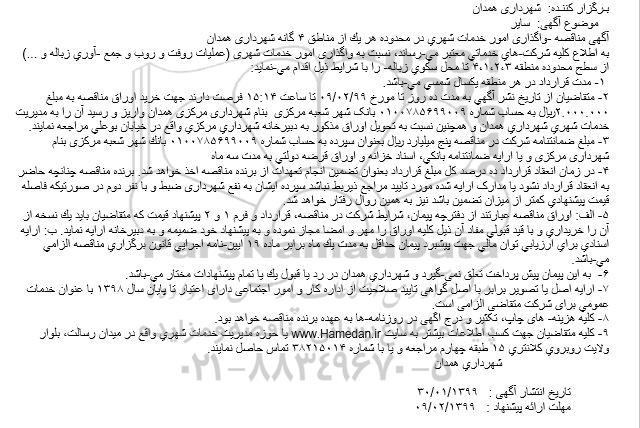 برگزار کننده: شهرداری همدان
موضوع آگهی: سایر
آگهی مناقصه -واگذاری امور خدمات شهري در محدوده هر يك از مناطق ۴ گانه شهرداری همدان
به اطلاع كليه شركت-هاي خدماتي معتبر مي-رساند، نسبت به واگذاري امور خدمات شهری (عمليات روفت و روب و جمع -آوري زباله و ...)
از سطح محدوده منطقه ۴،۱،۲،۳ تا محل سكوي زباله- را با شرايط ذيل اقدام مي-نمايد:
۱- مدت قرارداد در هر منطقه يكسال شمسي مي-باشد.
۲- متقاضيان از تاريخ نشر آگهي به مدت ده روز تا مورخ ۰۹/۰۲/۹۹ تا ساعت ۱۵:۱۴ فرصت دارند جهت خريد اوراق مناقصه به مبلغ
۲.۰۰۰.۰۰۰ريال به حساب شماره ۰۱۰۰۷۸۵۶۹۹۰۰۹ بانک شهر شعبه مرکزی بنام شهرداری مرکزی همدان واريز و رسيد آن را به مديريت
خدمات شهري شهرداري همدان و همچنين نسبت به تحويل اوراق مذكور به دبيرخانه شهرداري مركزي واقع در خيابان بوعلي مراجعه نمايند.
۳- مبلغ ضمانتنامه شركت در مناقصه پنج ميليارد ريال بعنوان سپرده به حساب شماره ۰۱۰۰۷۸۵۶۹۹۰۰۹ بانك شهر شعبه مركزی بنام
شهرداری مرکزی و يا ارايه ضمانتنامه بانكي، اسناد خزانه و اوراق قرضه دولتي به مدت سه ماه
۴- در زمان انعقاد قرارداد ده درصد كل مبلغ قرارداد بعنوان تضمين انجام تعهدات از برنده مناقصه اخذ خواهد شد. برنده مناقصه چنانچه حاضر
به انعقاد قرارداد نشود يا مدارک ارايه شده مورد تاييد مراجع ذيربط نباشد سپرده ايشان به نفع شهرداری ضبط و با نفر دوم در صورتيكه فاصله
قيمت پيشنهادي كمتر از ميزان تضمين باشد نيز به همين روال رفتار خواهد شد.
۵- الف: اوراق مناقصه عبارتند از دفترچه پيمان، شرايط شركت در مناقصه، قرارداد و فرم ۱ و ۲ پيشنهاد قيمت كه متقاضيان بايد يك نسخه از
آن را خريداری و با قيد قبولی مفاد آن ذيل كليه اوراق را مهر و امضا مجاز نموده و به پيشنهاد خود ضميمه و به دبيرخانه ارايه نمايد. ب: ارايه
اسنادي براي ارزيابي توان مالي جهت پيشبرد پيمان حداقل به مدت يك ماه برابر ماده ۱۹ آيين-نامه اجرايي قانون برگزاري مناقصه الزامي
مي-باشد.
۶- به اين پيمان پيش پرداخت تعلق نمي-گيرد و شهرداري همدان در رد يا قبول يك يا تمام پيشنهادات مختار مي-باشد.
۷- ارايه اصل يا تصوير برابر با اصل گواهی تاييد صلاحيت از اداره كار و امور اجتماعی دارای اعتبار تا پايان سال ۱۳۹۸ با عنوان خدمات
عمومي برای شركت متقاضی الزامی است.
۸- كليه هزينه- هاي چاپ، تكثير و درج آگهي در روزنامه-ها به عهده برنده مناقصه خواهد بود.
۹- كليه متقاضيان جهت كسب اطلاعات بيشتر به سايت www.Hamedan.ir يا حوزه مديريت خدمات شهري واقع در ميدان رسالت، بلوار
ولايت روبروي كلانتري ۱۵ طبقه چهارم مراجعه و يا با شماره ۳۸۲۱۵۰۱۴ تماس حاصل نمايند.
شهرداري همدان
۰۲۱-۸۸۳۴۹۶۷۰-۵
تاریخ انتشار آگهی : ۳۰/۰۱/۱۳۹۹
مهلت ارائه پیشنهاد : ۰۹/۰۲/۱۳۹۹